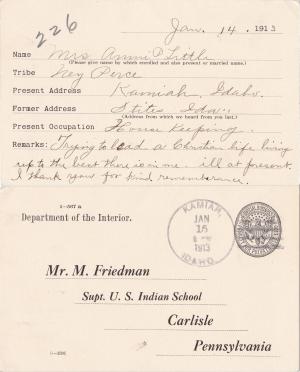 226
Jan. 14. 1913
Name Mrs Annie P Little
(Please give name by which enrolled and also present or married name.)
Tribe Nez Perce
Present Address Kamiah, Idaho.
Former Address Stites Ida.
(Address from which we heard from you last.)
Present Occupation House keeping.
Remarks: Trying to lead a Christian life living
up to the best there is in me. ill at present.
I thank you for kind rememberance.
5-567 a
Department of the Interior.
KAMIAH,
JAN
15
1913
IDAHO.
Mr. M. Friedman
Supt. U. S. Indian School
Carlisle
Pennsylvania